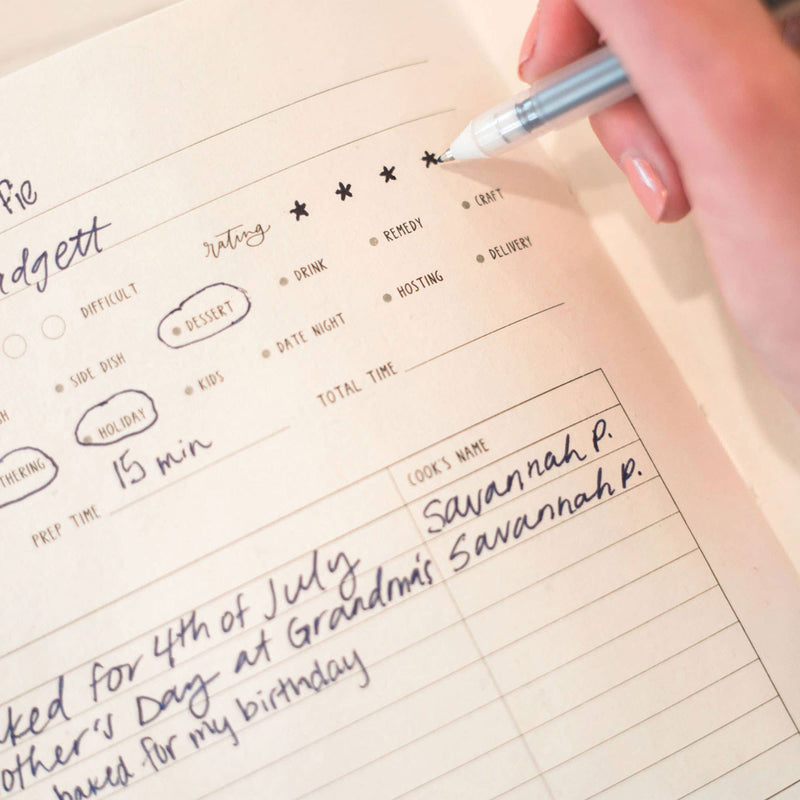 Pie
rating
DIFFICULT
DESSERT DRINK REMEDY CRAFT
SIDE DISH DATE NIGHT HOSTING DELIVERY
HOLIDAY KIDS
TOTAL TIME
PREP TIME 15 min
COOK'S NAME
Savannah P.
for 4th of July Savannah P.
Day at Grandma's
baked for my birthday